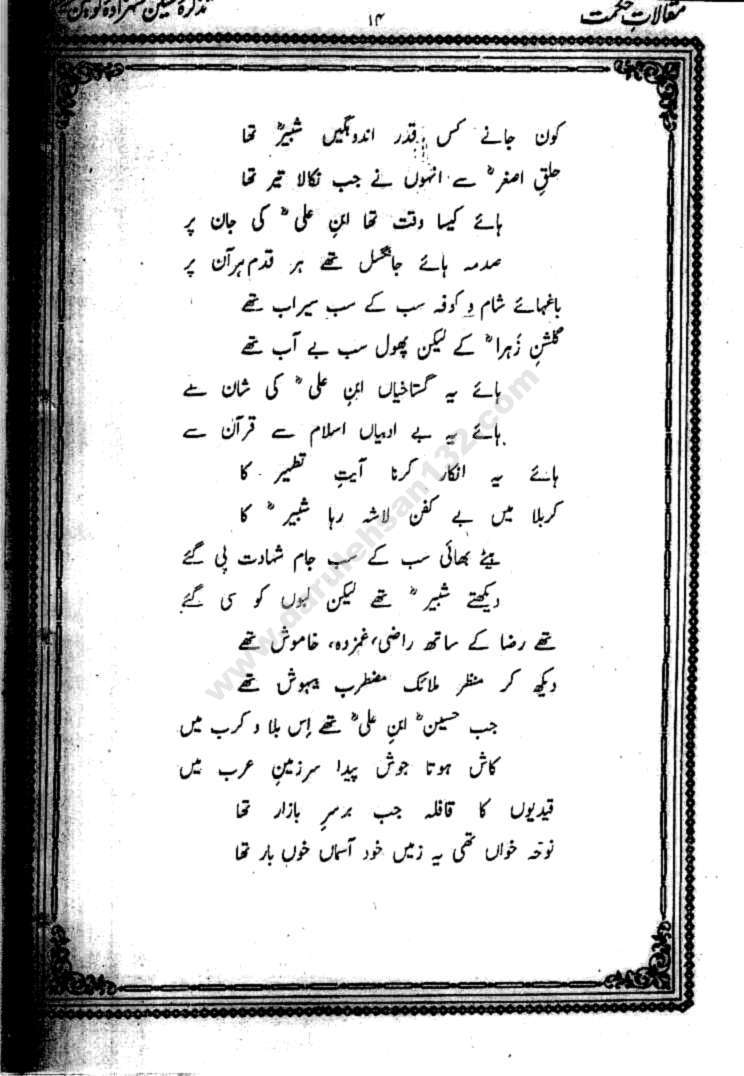 مقالاتِ حکمت
۱۴
تذکرۂ حسین شہزادۂ کونین
کون جانے کس قدر اندوہگیں شبیرؓ تھا
حلقِ اصغرؓ سے انہوں نے جب نکالا تیر تھا
ہائے کیسا وقت تھا ابنِ علیؓ کی جان پر
صدمہ ہائے جانگسل تھے ہر قدم ہر آن پر
باغہائے شام و کوفہ سب کے سب سیراب تھے
گلشنِ زُہراؓ کے لیکن پھول سب بے آب تھے
ہائے یہ گستاخیاں ابنِ علیؓ کی شان سے
ہائے یہ بے ادبیاں اسلام سے قرآن سے
ہائے یہ انکار کرنا آیتِ تطہیر کا
کربلا میں بے کفن لاشہ رہا شبیرؓ کا
بیٹے بھائی سب کے سب جام شہادت پی گئے
دیکھتے شبیرؓ تھے لیکن لبوں کو سی گئے
تھے رضا کے ساتھ راضی، غمزدہ، خاموش تھے
دیکھ کر منظر ملائک مضطرب بیہوش تھے
جب حسینؓ ابنِ علیؓ تھے اِس بلا و کرب میں
کاش ہوتا جوش پیدا سرزمینِ عرب میں
قیدیوں کا قافلہ جب برسرِ بازار تھا
نوحہ خواں تھی یہ زمیں خود آسماں خوں بار تھا
www.darulehsan132.com